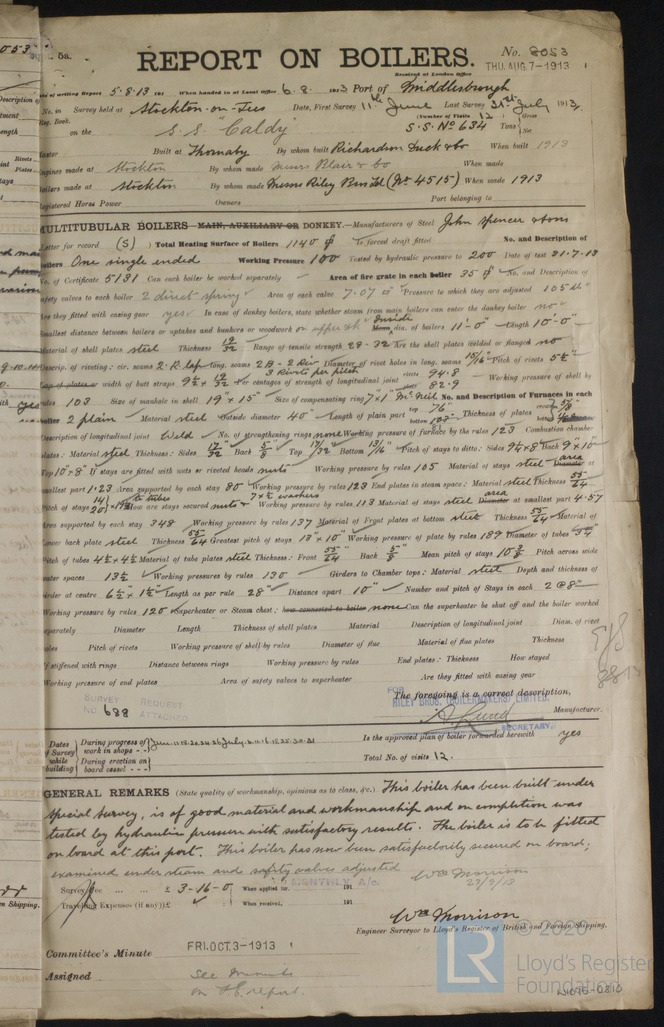 5a.
REPORT ON BOILERS.
No. 8053
Received at London Office
THU. AUG. 7-1913
of writing Report 5.8.13 191 When handed in at Local Office 6.8.1913 Port of Middlesbrough
No. in Survey held at Stockton-on-Tees Date, First Survey 11th June Last Survey 31st July 1913
Reg. Book. (Number of Visits 12) Gross
on the S.S. "Caldy" S.S. No 634 Tons Net
Master Built at Thornaby By whom built Richardson Duck & Co When built 1913
Engines made at Stockton By whom made Messrs Blair & Co When made
Boilers made at Stockton By whom made Messrs Riley Bros Ltd (No 4515) When made 1913
Registered Horse Power Owners Port belonging to
MULTITUBULAR BOILERS MAIN, AUXILIARY OR DONKEY.—Manufacturers of Steel John Spencer & Sons
Letter for record (S) Total Heating Surface of Boilers 1140 Is forced draft fitted No. and Description of
Boilers One single ended Working Pressure 100 Tested by hydraulic pressure to 200 Date of test 31.7.13
No. of Certificate 5131 Can each boiler be worked separately Area of fire grate in each boiler 35 No. and Description of
safety valves to each boiler 2 direct spring Area of each valve 7.07 Pressure to which they are adjusted 105
Are they fitted with easing gear yes In case of donkey boilers, state whether steam from main boilers can enter the donkey boiler no
Smallest distance between boilers or uptakes and bunkers or woodwork Inside Mean dia. of boilers 11'-0" Length 10'-0"
Material of shell plates steel Thickness 19/32 Range of tensile strength 28-32 Are the shell plates welded or flanged no
Descrip. of riveting: cir. seams 2 R. lap long. seams Diameter of rivet holes in long. seams 15/16" Pitch of rivets
Lap of plates or width of butt straps Per centages of strength of longitudinal joint rivets 94.8 plate 82.9 Working pressure of shell by
rules 103 Size of manhole in shell 19" x 15" Size of compensating ring 7" x 1" McNeil No. and Description of Furnaces in each
boiler 2 plain Material steel Outside diameter 40" Length of plain part top 76" bottom Thickness of plates
Description of longitudinal joint Weld No. of strengthening rings none Working pressure of furnace by the rules 123 Combustion chamber
plates: Material steel Thickness: Sides 17/32 Back 5/8 Top 17/32 Bottom 13/16" Pitch of stays to ditto: Sides 9½ x 8 Back 9" x 10"
Top 10" x 8" If stays are fitted with nuts or riveted heads nuts Working pressure by rules 105 Material of stays steel area Diameter at
smallest part 1.23 Area supported by each stay 80 Working pressure by rules 123 End plates in steam space: Material steel Thickness 55/64
Pitch of stays How are stays secured nuts & 7 x ½ washers Working pressure by rules 113 Material of stays steel area Diameter at smallest part 4.57
Area supported by each stay 348 Working pressure by rules 137 Material of Front plates at bottom steel Thickness 55/64 Material of
Lower back plate steel Thickness 55/64 Greatest pitch of stays 18" x 10" Working pressure of plate by rules 189 Diameter of tubes
Pitch of tubes 4½ x 4½ Material of tube plates steel Thickness: Front 55/64 Back 5/8 Mean pitch of stays 10 3/8 Pitch across wide
water spaces 13½ Working pressures by rules 130 Girders to Chamber tops: Material steel Depth and thickness of
girder at centre 6½" x 1½ Length as per rule 28" Distance apart 10" Number and pitch of Stays in each 2 @ 8"
Working pressure by rules 120 Superheater or Steam chest; how connected to boiler none Can the superheater be shut off and the boiler worked
separately Diameter Length Thickness of shell plates Material Description of longitudinal joint Diam. of rivet
holes Pitch of rivets Working pressure of shell by rules Diameter of flue Material of flue plates Thickness
If stiffened with rings Distance between rings Working pressure by rules End plates: Thickness How stayed
Working pressure of end plates Area of safety valves to superheater Are they fitted with easing gear
SURVEY REQUEST
No. 688 ATTACHED
The foregoing is a correct description,
FOR RILEY BROS. (BOILERMAKERS) LIMITED.
Manufacturer.
SECRETARY.
Dates of Survey while building
During progress of work in shops - -
During erection on board vessel - - -
Is the approved plan of boiler forwarded herewith yes
Total No. of visits 12.
GENERAL REMARKS (State quality of workmanship, opinions as to class, &c.) This boiler has been built under
special survey, is of good material and workmanship and on completion was
tested by hydraulic pressure with satisfactory results. The boiler is to be fitted
on board at this port. This boiler has now been satisfactorily secured on board,
examined under steam and safety valves adjusted
Wm Morrison
Survey Fee ... ... £ 3-16-0 When applied for, MONTHLY A/c. 191
Travelling Expenses (if any) £ When received, 191
Wm Morrison
Engineer Surveyor to Lloyd's Register of British and Foreign Shipping.
Committee's Minute FRI. OCT. 3-1913
Assigned see minute
on report.
© 2020
LR
Lloyd's Register
Foundation